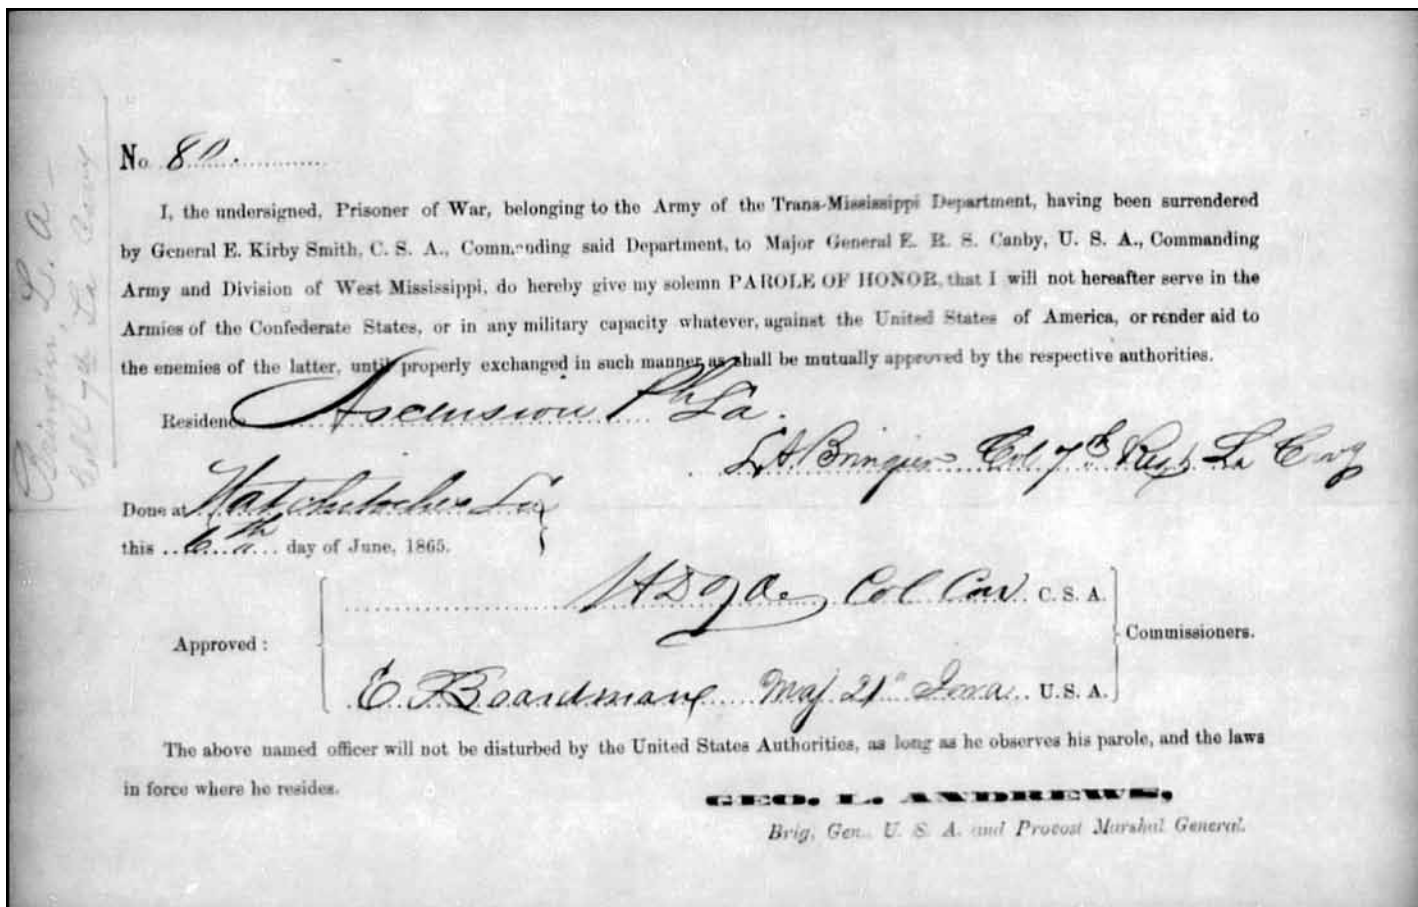 No 80.
I, the undersigned, Prisoner of War, belonging to the Army of the Trans-Mississippi Department, having been surrendered
by General E. Kirby Smith, C. S. A., Commanding said Department, to Major General E. R. S. Canby, U. S. A., Commanding
Army and Division of West Mississippi, do hereby give my solemn PAROLE OF HONOR, that I will not hereafter serve in the
Armies of the Confederate States, or in any military capacity whatever, against the United States of America, or render aid to
the enemies of the latter, until properly exchanged in such manner as shall be mutually approved by the respective authorities.
Residence Ascension Ph La.
L A Bringier Col 7th Regt La Cavy
Done at Natchitoches La
this 6th day of June, 1865.
Col Cav C. S. A.
Approved :
Commissioners.
E Boardman Maj 21" Iowa U. S. A.
The above named officer will not be disturbed by the United States Authorities, as long as he observes his parole, and the laws
in force where he resides.
GEO. L. ANDREWS,
Brig. Gen. U. S. A. and Provost Marshal General.
Bringier, L. A -
Col 7th La Cavy